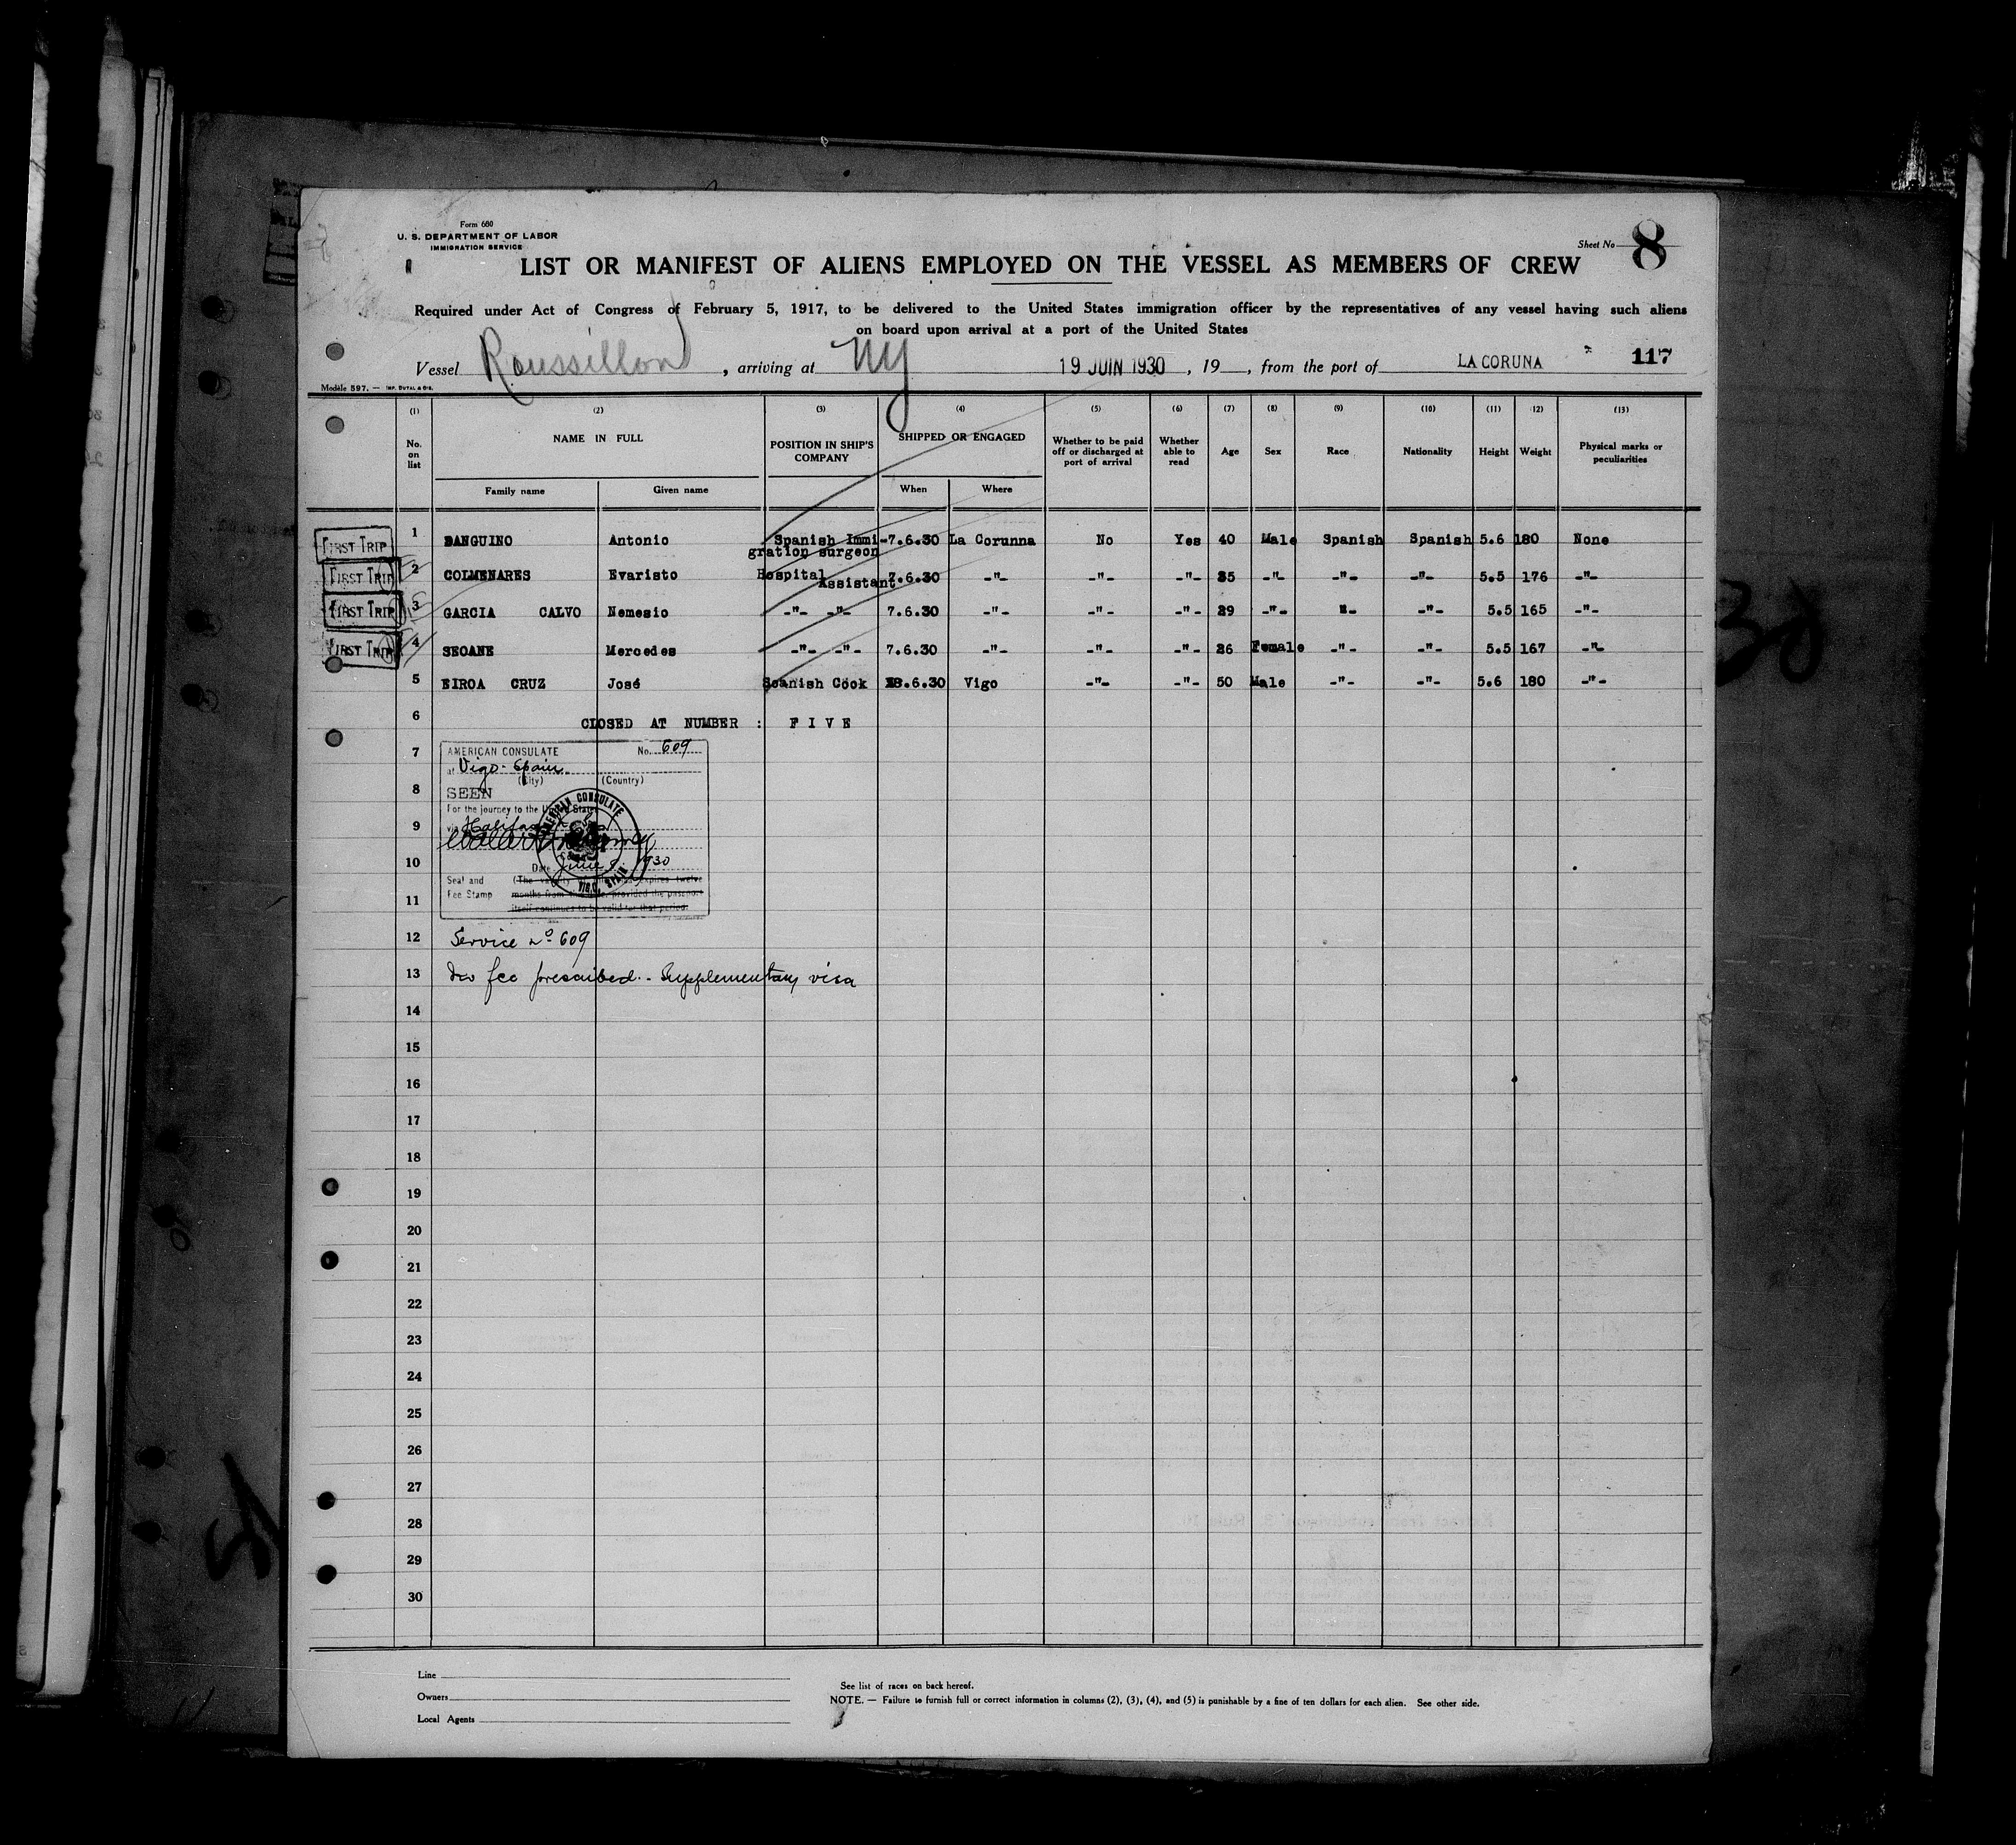 Form 680
U. S. DEPARTMENT OF LABOR
IMMIGRATION SERVICE
Sheet No 8
LIST OR MANIFEST OF ALIENS EMPLOYED ON THE VESSEL AS MEMBERS OF CREW
Required under Act of Congress of February 5, 1917, to be delivered to the United States immigration officer by the representatives of any vessel having such aliens
on board upon arrival at a port of the United States
Vessel Roussillon, arriving at NY 19 JUIN 1930, 19, from the port of LA CORUNA 117
Modèle 597. — IMP. DUVAL & DIS.
(1) (2) (3) (4) (5) (6) (7) (8) (9) (10) (11) (12) (13)
No. on list NAME IN FULL POSITION IN SHIP'S COMPANY SHIPPED OR ENGAGED Whether to be paid off or discharged at port of arrival Whether able to read Age Sex Race Nationality Height Weight Physical marks or peculiarities
Family name Given name When Where
FIRST TRIP 1 Antonio Spanish Immi-gration surgeon 7.6.30 La Corunna No Yes 40 Male Spanish Spanish 5.6 180 None
FIRST TRIP 2 COLMENARES Evaristo Hospital Assistant 7.6.30 -"- -"- -"- 35 -"- -"- -"- 5.5 176 -"-
FIRST TRIP 3 GARCIA CALVO Nemesio -"- -"- 7.6.30 -"- -"- -"- 29 -"- "- -"- 5.5 165 -"-
FIRST TRIP 4 SEOANE Mercedes -"- -"- 7.6.30 -"- -"- -"- 26 Female -"- -"- 5.5 167 -"-
5 EIROA CRUZ José Spanish Cook .6.30 Vigo -"- -"- 50 Male -"- -"- 5.6 180 -"-
6 CLOSED AT NUMBER : FIVE
7 AMERICAN CONSULATE No. 609
at Vigo - Spain
(City) (Country)
8 SEEN
For the journey to the United States
9 via Halifax
AMERICAN CONSULATE
VIGO, SPAIN
10 Date June 1930
Seal and (The validity expires twelve
Fee Stamp months from provided the passport
11 itself continues to be valid for that period.
12 Service no 609
13 No fee prescribed. - Supplementary visa
14
15
16
17
18
19
20
21
22
23
24
25
26
27
28
29
30
Line
Owners
Local Agents
See list of races on back hereof.
NOTE. — Failure to furnish full or correct information in columns (2), (3), (4), and (5) is punishable by a fine of ten dollars for each alien. See other side.